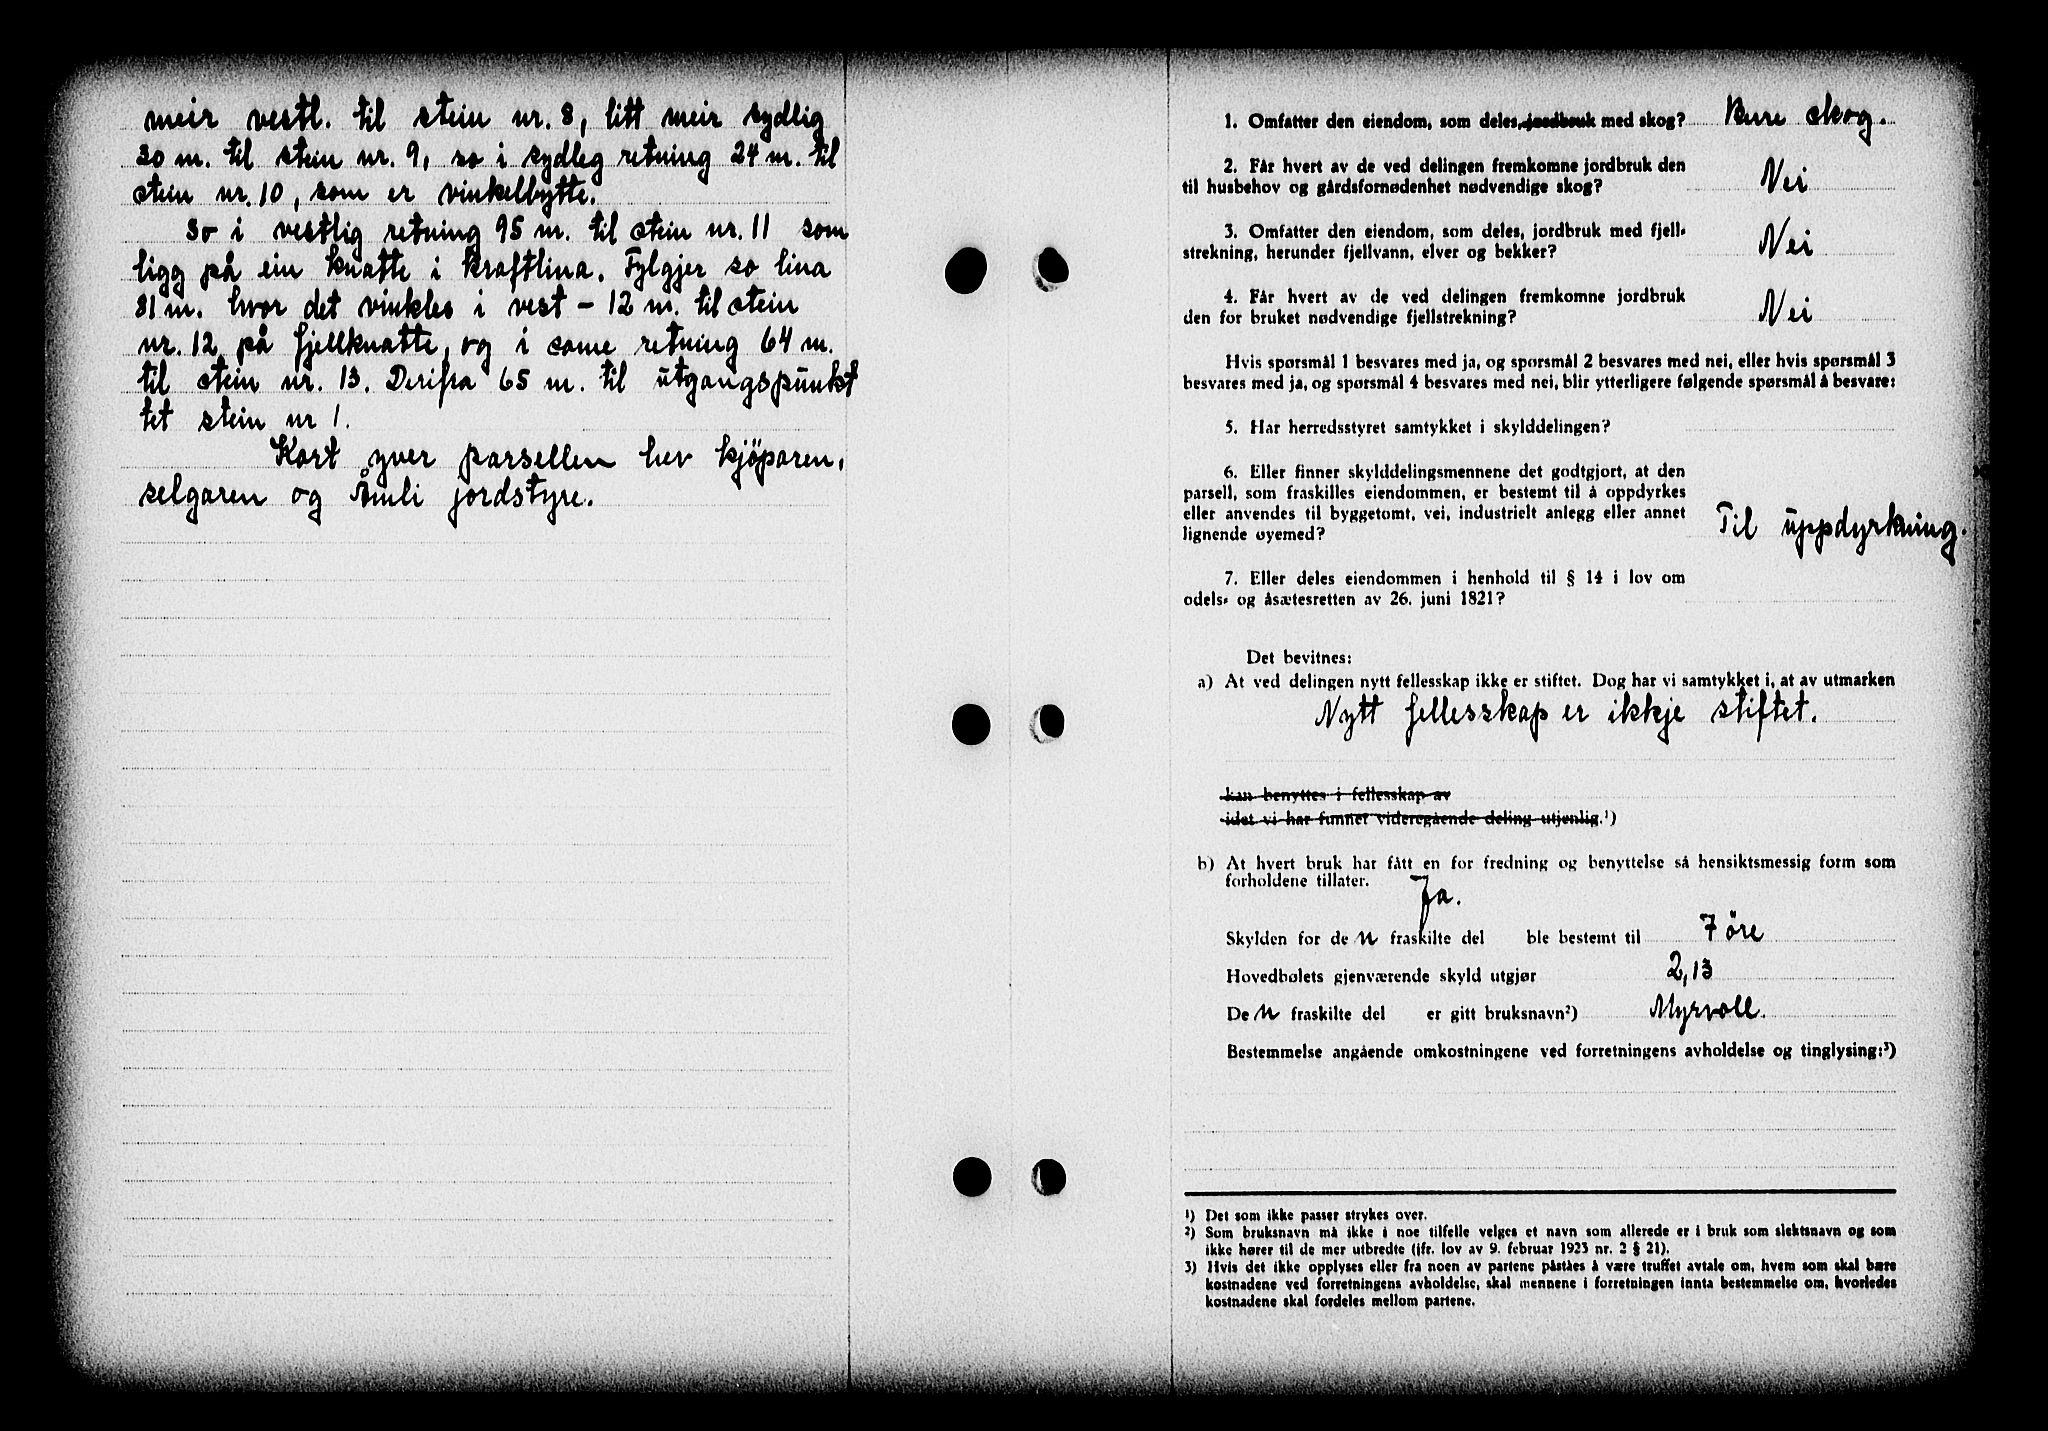 meir vestl. til stein nr. 8, litt meir sydlig
30 m. til stein nr. 9, so i sydleg retning 24 m. til
stein nr. 10, som er vinkelbytte.
So i vestlig retning 95 m. til stein nr. 11 som
ligg på ein knatte i kraftlina. Fylgjer so lina
81 m. hvor det vinkles i vest – 12 m. til stein
nr. 12 på fjellknatte, og i same retning 64 m.
til stein nr. 13. Derifra 65 m. til utgangspunkt
tet stein nr 1.
Kart yver parsellen hev kjöparen,
selgaren og Åmli jordstyre.
1. Omfatter den eiendom, som deles, jordbruk med skog? Bare skog.
2. Får hvert av de ved delingen fremkomne jordbruk den
til husbehov og gårdsfornødenhet nødvendige skog? Nei
3. Omfatter den eiendom, som deles, jordbruk med fjell-
strekning, herunder fjellvann, elver og bekker? Nei
4. Får hvert av de ved delingen fremkomne jordbruk
den for bruket nødvendige fjellstrekning? Nei
Hvis spørsmål 1 besvares med ja, og spørsmål 2 besvares med nei, eller hvis spørsmål 3
besvares med ja, og spørsmål 4 besvares med nei, blir ytterligere følgende spørsmål å besvare:
5. Har herredsstyret samtykket i skylddelingen?
6. Eller finner skylddelingsmennene det godtgjort, at den
parsell, som fraskilles eiendommen, er bestemt til å oppdyrkes
eller anvendes til byggetomt, vei, industrielt anlegg eller annet
lignende øyemed? Til uppdyrkning.
7. Eller deles eiendommen i henhold til § 14 i lov om
odels- og åsætesretten av 26. juni 1821?
Det bevitnes:
a) At ved delingen nytt fellesskap ikke er stiftet. Dog har vi samtykket i, at av utmarken
Nytt fellesskap er ikkje stiftet.
kan benyttes i fellesskap av
idet vi har funnet videregående deling utjenlig.¹)
b) At hvert bruk har fått en for fredning og benyttelse så hensiktsmessig form som
forholdene tillater.
Ja.
Skylden for den fraskilte del ble bestemt til 7 öre
Hovedbølets gjenværende skyld utgjør 2,13
Den fraskilte del er gitt bruksnavn²) Myrvoll.
Bestemmelse angående omkostningene ved forretningens avholdelse og tinglysing:³)
¹) Det som ikke passer strykes over.
²) Som bruksnavn må ikke i noe tilfelle velges et navn som allerede er i bruk som slektsnavn og som
ikke hører til de mer utbredte (jfr. lov av 9. februar 1923 nr. 2 § 21).
3) Hvis det ikke opplyses eller fra noen av partene påståes å være truffet avtale om, hvem som skal bære
kostnadene ved forretningens avholdelse, skal mennene i forretningen innta bestemmelse om, hvorledes
kostnadene skal fordeles mellom partene.